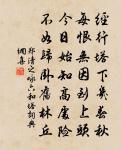 經行塔下幾春秋
每恨無因到上頭
今日始知高處險
不如歸卧舊林丘
鄭清之詠六和塔詞典
網集